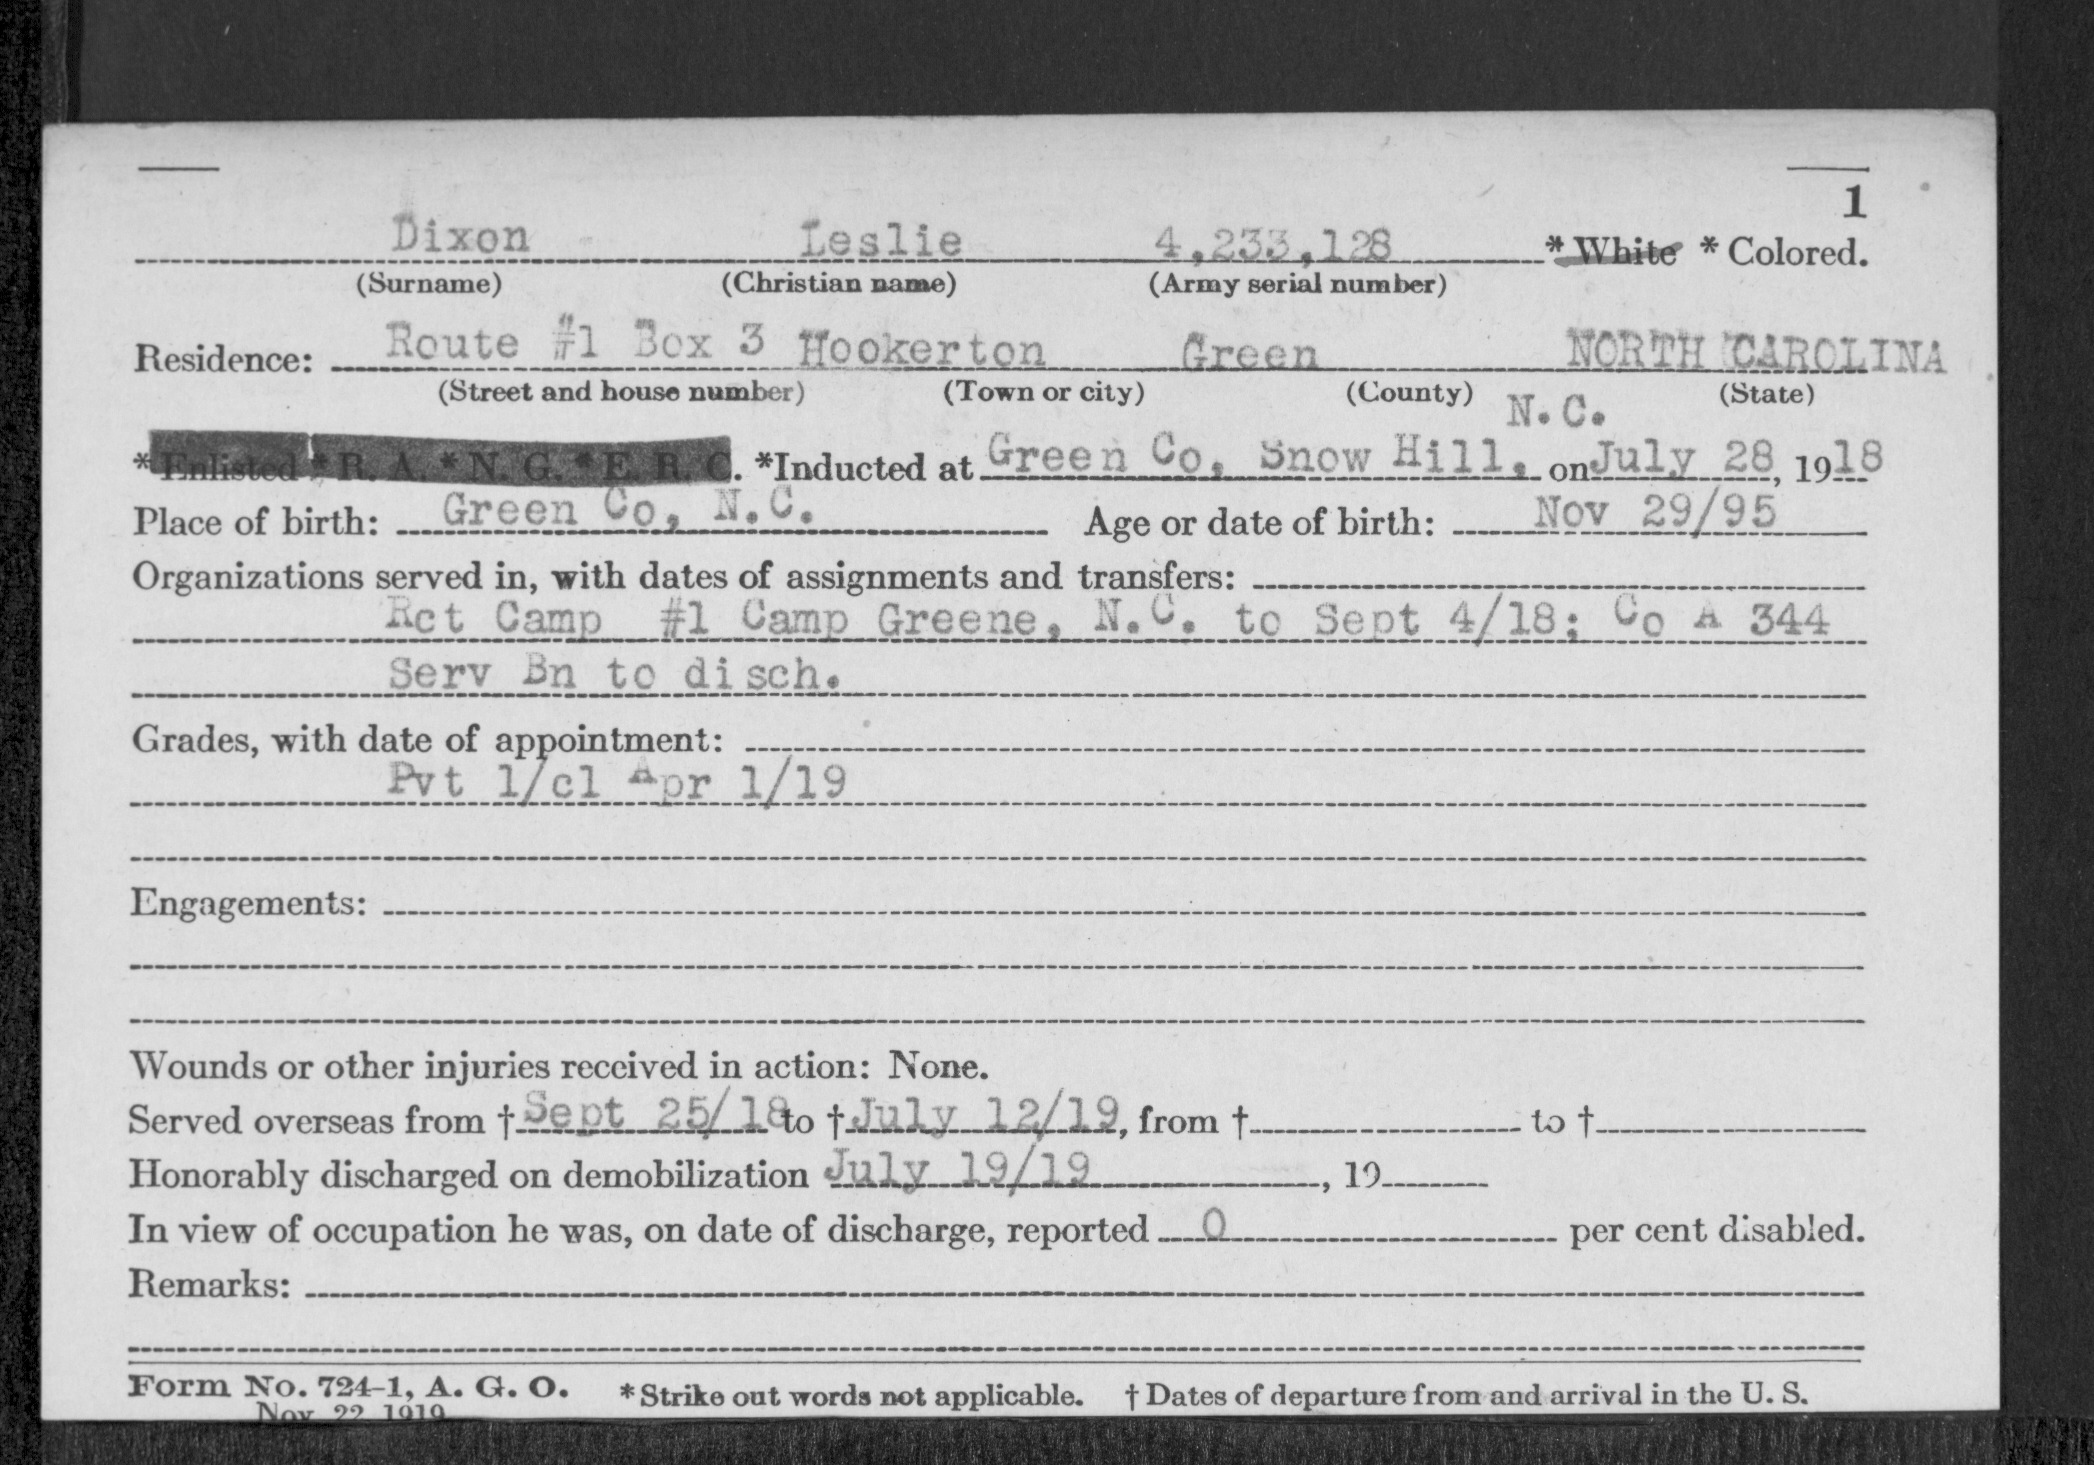 1
Dixon Leslie 4,233,128 * White * Colored.
(Surname) (Christian name) (Army serial number)
Residence: Route #1 Box 3 Hookerton Green NORTH CAROLINA
(Street and house number) (Town or city) (County) (State)
N.C.
* Enlisted * R. A. * N. G. * E. R. C. *Inducted at Green Co, Snow Hill, on July 28, 1918
Place of birth: Green Co, N.C. Age or date of birth: Nov 29/95
Organizations served in, with dates of assignments and transfers:
Rct Camp #1 Camp Greene, N.C. to Sept 4/18; Co A 344
Serv Bn to disch.
Grades, with date of appointment:
Pvt 1/cl Apr 1/19
Engagements:
Wounds or other injuries received in action: None.
Served overseas from † Sept 25/18 to † July 12/19, from † to †
Honorably discharged on demobilization July 19/19, 19
In view of occupation he was, on date of discharge, reported 0 per cent disabled.
Remarks:
Form No. 724-1, A. G. O. * Strike out words not applicable. † Dates of departure from and arrival in the U. S.
Nov. 22, 1919